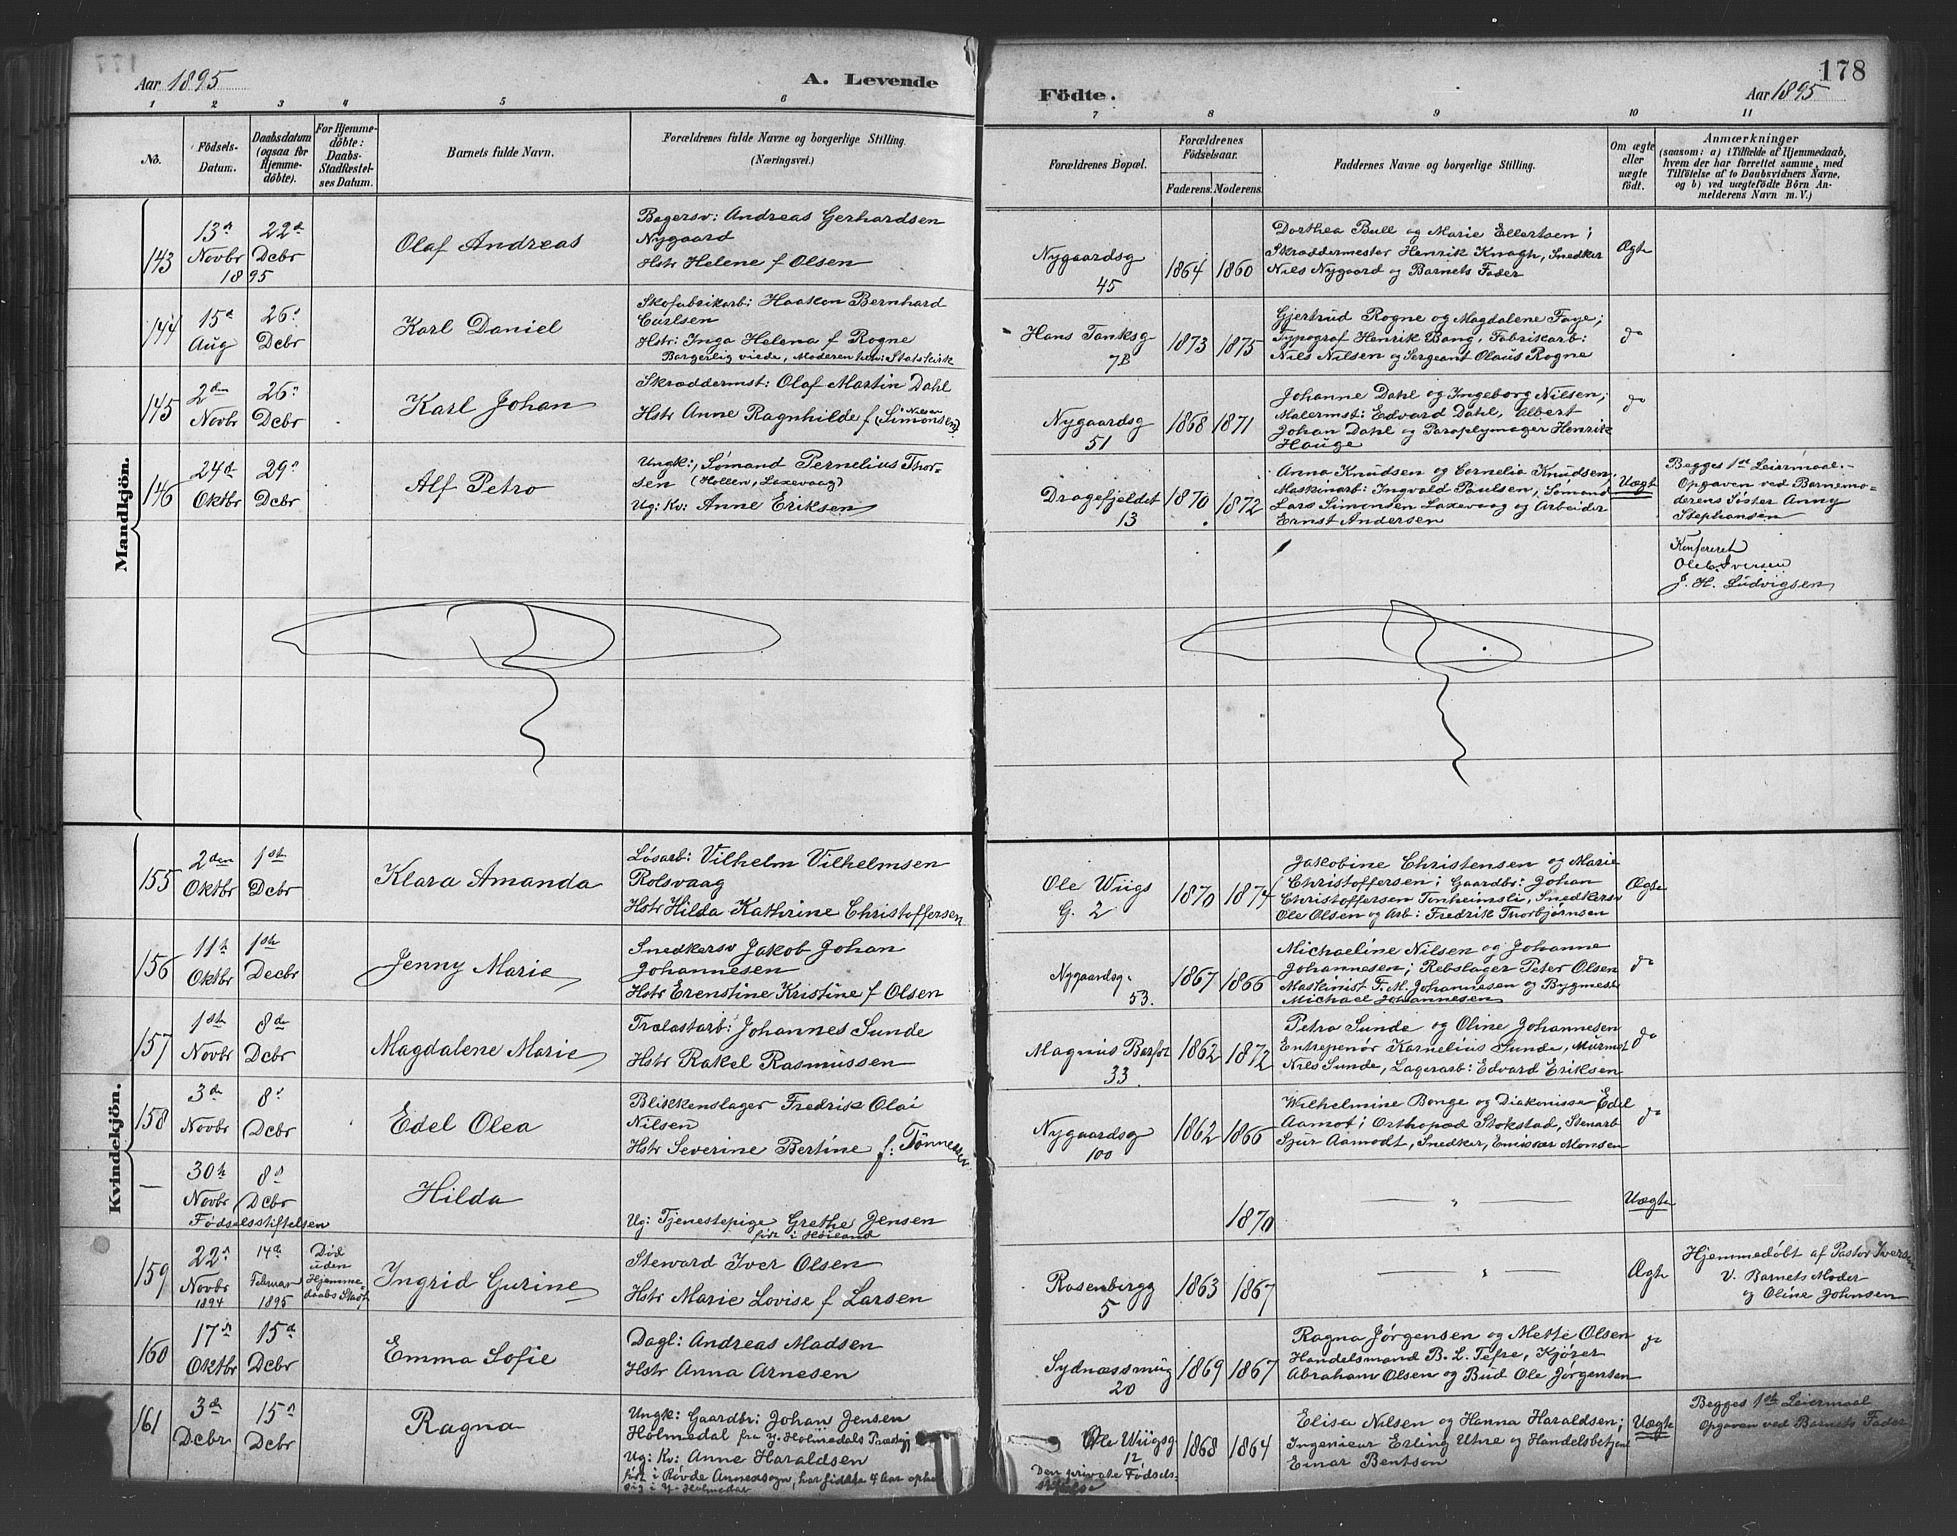 Aar 1895
A. Levende
1 2 3 4 5 6
No.
Födsels-
Datum.
Daabsdatum
(ogsaa for
Hjemme-
döbte).
For Hjemme-
döbte:
Daabs-
Stadfæstel-
ses Datum.
Barnets fulde Navn.
Forældrenes fulde Navne og borgerlige Stilling.
(Næringsvei.)
Mandkjön.
143
13d
Novbr
1895
22d
Dcbr
Olaf Andreas
Bagersv: Andreas Gerhardsen
Nygaard
Hstr Helene f Olsen
144
15d
Aug
26d
Dcbr
Karl Daniel
Skofabrikarb: Haakon Bernhard
Carlsen
Hstr: Inga Helena f Rogne
Borgerlig viede, Moderen hen: Statskirk
145
2den
Novbr
26d
Dcbr
Karl Johan
Skræddermst: Olaf Martin Dahl
Hstr Anne Ragnhilde f (Simonsen)
Nilsen
146
24d
Oktbr
29d
Dcbr
Alf Petro
Ungk:, Sømand Pernelius Thor-
sen (Hollen, Laxevaag)
Ug: Kv: Anne Eriksen
Kvindekjön.
155
2den
Oktbr
1st
Dcbr
Klara Amanda
Løsarb: Vilhelm Vilhelmsen
Rolsvaag
Hstr Hilda Kathrine Christoffersen
156
11th
Oktbr
1st
Decbr
Jenny Marie
Snedkersv Jakob Johan
Johannesen
Hstr Erenstine Kristine f Olsen
157
1st
Novbr
8de
Dcbr
Magdalene Marie
Trælastarb: Johannes Sunde
Hstr Rakel Rasmussen
158
3de
Novbr
8d
Dcbr
Edel Olea
Blikkenslager Fredrik Olai
Nilsen
Hstr Severine Bertine f: Tønnesen
—
30th
Novbr
8d
Dcbr
Fødselsstiftelsen
Hilda
Ug: Tjenestepige Grethe Jensen
født i Høiland
159
22d
Novbr
1894
14d
Februar
1895
Død
uden
Hjemme
daabs Stadf
Ingrid Gurine
Steward Iver Olsen
Hstr Marie Lovise f Larsen
160
17d
Oktbr
15d
Dcbr
Emma Sofie
Dagl: Andreas Madsen
Hstr Anna Arnesen
161
3de
Dcbr
15d
Dcbr
Ragna
Ungk: Gaardbr: Johan Jensen
Holmedal fra Y. Holmedals Præstgj
Ug: Kv: Anne Haraldsen
født i Røvde Annexsogn, har siddte 4 Aar ophol
sig i Y. Holmedal
178
Födte.
Aar 1895
7 8 9 10 11
Forældrenes Bopæl.
Forældrenes
Födselsaar.
Faderens. Moderens.
Faddernes Navne og borgerlige Stilling.
Om ægte
eller
uægte
födt.
Anmærkninger
(saasom: a) i Tilfælde af Hjemmedaab,
hvem der har forrettet samme, med
Tilföielse af to Daabsvidners Navne,
og b) ved uægtefödte Börn An-
melderens Navn m. V.)
Nygaardsg
45
1864 1860
Dorthea Bull og Marie Ellertsen;
Skræddermester Henrik Knagh, Snedker
Nils Nygaard og Barnets Fader
Ægte
Hans Tanksg
7B
1873 1875
Gjertrud Rogne og Magdalene Faye;
Typograf Henrik Bang, Fabrikarb:
Nils Nilsen og Sergeant Olaus Rogne
do
Nygaardsg
51
1868 1871
Johanne Dahl og Ingeborg Nilsen;
Malermst: Edvard Dahl, Albert
Johan Dahl og Paraplymager Henrik
Hauge
do
Dragefjeldet
13
1870 1872
Anna Knudsen og Cornelia Knudsen;
Maskinarb: Ingvald Paulsen, Sømand
Lars Simonsen Laxevaag og Arbeider
Ernst Andersen
Uægt
Begges 1st Leiermaal.
Opgaven ved Barnemo-
derens Søster Anny
Stephansen
Konfereret
Ole C. Iversen
J. H. Ludvigsen
Ole Wiigs
G. 2
1870 1874
Jakobine Christensen og Marie
Christoffersen; Gaardbr: Johan
Christoffersen Tonheimsli, Snedkersv
Ole Olsen og Arb: Fredrik Thorbjørnsen
Ægte
Nygaardsg.
53.
1867 1866
Michaeline Nilsen og Johanne
Johannesen; Rebslager Peter Olsen
Maskinist F. M. Johannesen og Bygmest
Michael Johannesen
do
Magnus Barfot
33
1862 1872
Petra Sunde og Oline Johannesen
Entrepenør Kornelius Sunde, Murmst
Nils Sunde, Lagerarb: Edvard Eriksen
do
Nygaardsg
100
1862 1866
Wilhelmine Bonge og Diakonisse Edel
Aamot; Orthopæd Stokstad, Stenarb
Sjur Aamodt, Snedker, Emissær Monsen
do
1870
— " —
Uægte
Rosenbergg
5
1863 1867
— " —
Ægte
Hjemmedøbt af Pastor Iversen
V. Barnets Moder
og Oline Johnsen
Sydnæssmug
20
1869 1867
Ragna Jørgensen og Mette Olsen
Handelsmand B. L. Tefre, Kjører
Abraham Olsen og Bud Ole Jørgensen
do
Ole Wiigsg
12
Den private Fødsels-
1868 1864
Elisa Nilsen og Hanna Haraldsen;
Ingeniør Erling Utne og Handelsbetjent
Einar Bentson
Uægte
Begges 1st Leiermaal
Opgaven ved Barnets Fader